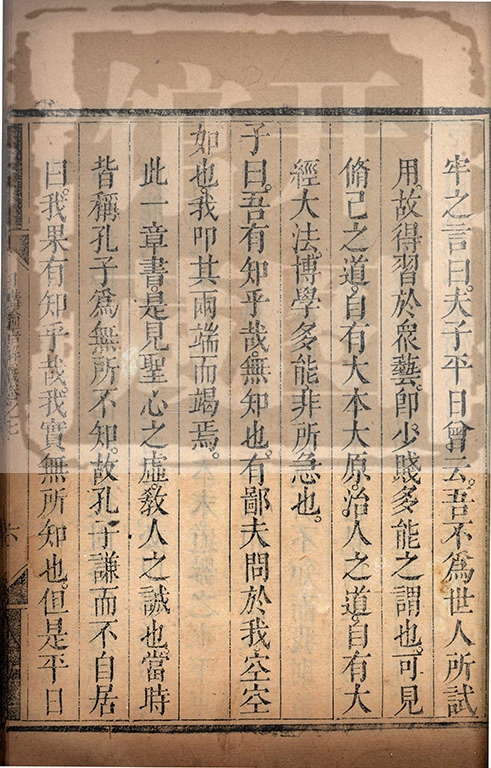 牢之言曰。夫子平日曾云。吾不爲世人所試
用。故得習於衆藝。卽少賤多能之謂也。可見
脩己之道。自有大本大原。治人之道。自有大
經大法。博學多能。非所急也。
子曰。吾有知乎哉。無知也。有鄙夫問於我。空空
如也。我叩其兩端而竭焉。
此一章書。是見聖心之虛。敎人之誠也。當時
皆稱孔子爲無所不知。故孔子謙而不自居
曰。我果有知乎哉。我實無所知也。但是平日